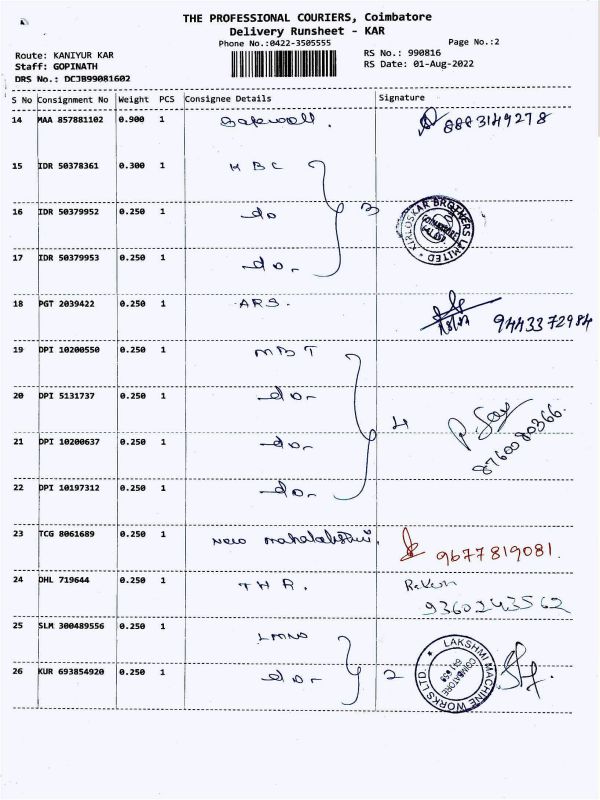 THE PROFESSIONAL COURIERS, Coimbatore
Delivery Runsheet - KAR
Phone No.:0422-3505555
Page No.:2
Route: KANIYUR KAR
RS No.: 990816
Staff: GOPINATH
RS Date: 01-Aug-2022
DRS No.: DCJB99081602
S No Consignment No Weight PCS Consignee Details Signature
14 MAA 857881102 0.900 1 8883149278
15 IDR 50378361 0.300 1 KBC
16 IDR 50379952 0.250 1 do 3 KIRLOSKAR BROTHERS LIMITED
17 IDR 50379953 0.250 1 do
18 PGT 2039422 0.250 1 ARS. 9443372984
19 DPI 10200550 0.250 1 MBT
20 DPI 5131737 0.250 1 do
21 DPI 10200637 0.250 1 do 4 8760080366
22 DPI 10197312 0.250 1 do
23 TCG 8061689 0.250 1 New mahalakshmi. 9677819081.
24 DHL 719644 0.250 1 THR. 9360243562
25 SLM 300489556 0.250 1 LMNO
26 KUR 693854920 0.250 1 do 2 LAKSHMI MACHINE WORKS LTD COIMBATORE